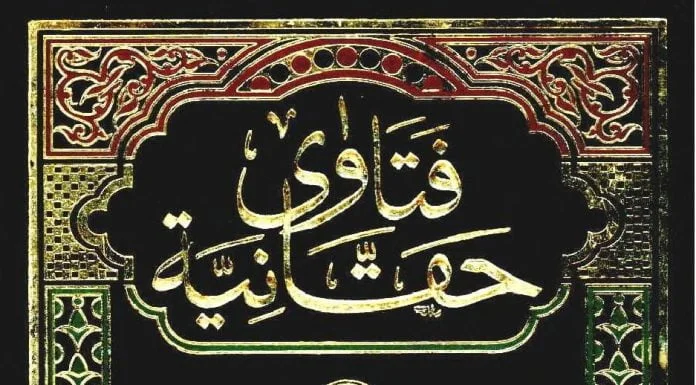 فَتَاوٰى
حقَّانِيَّة